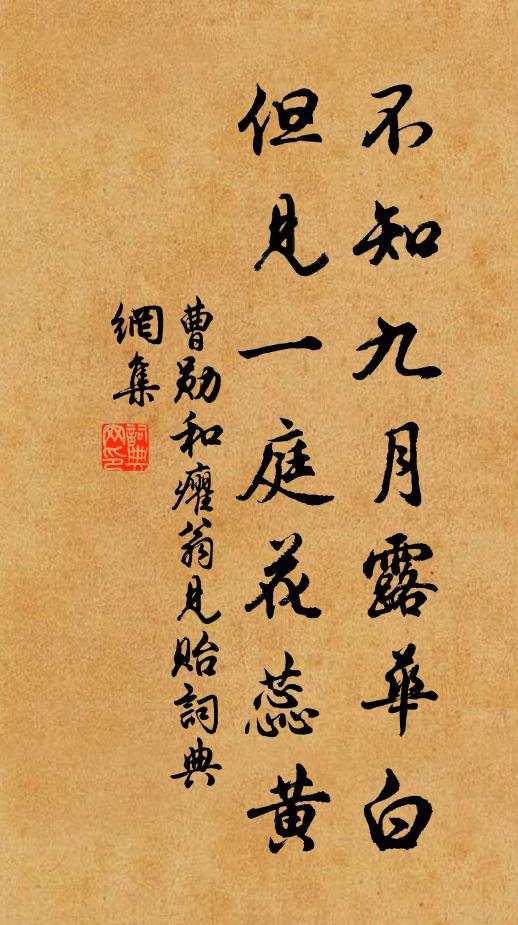 不知九月露華白
但見一庭花蕊黄
曹勛和癯翁見貽詞典
網集
詞典
网印